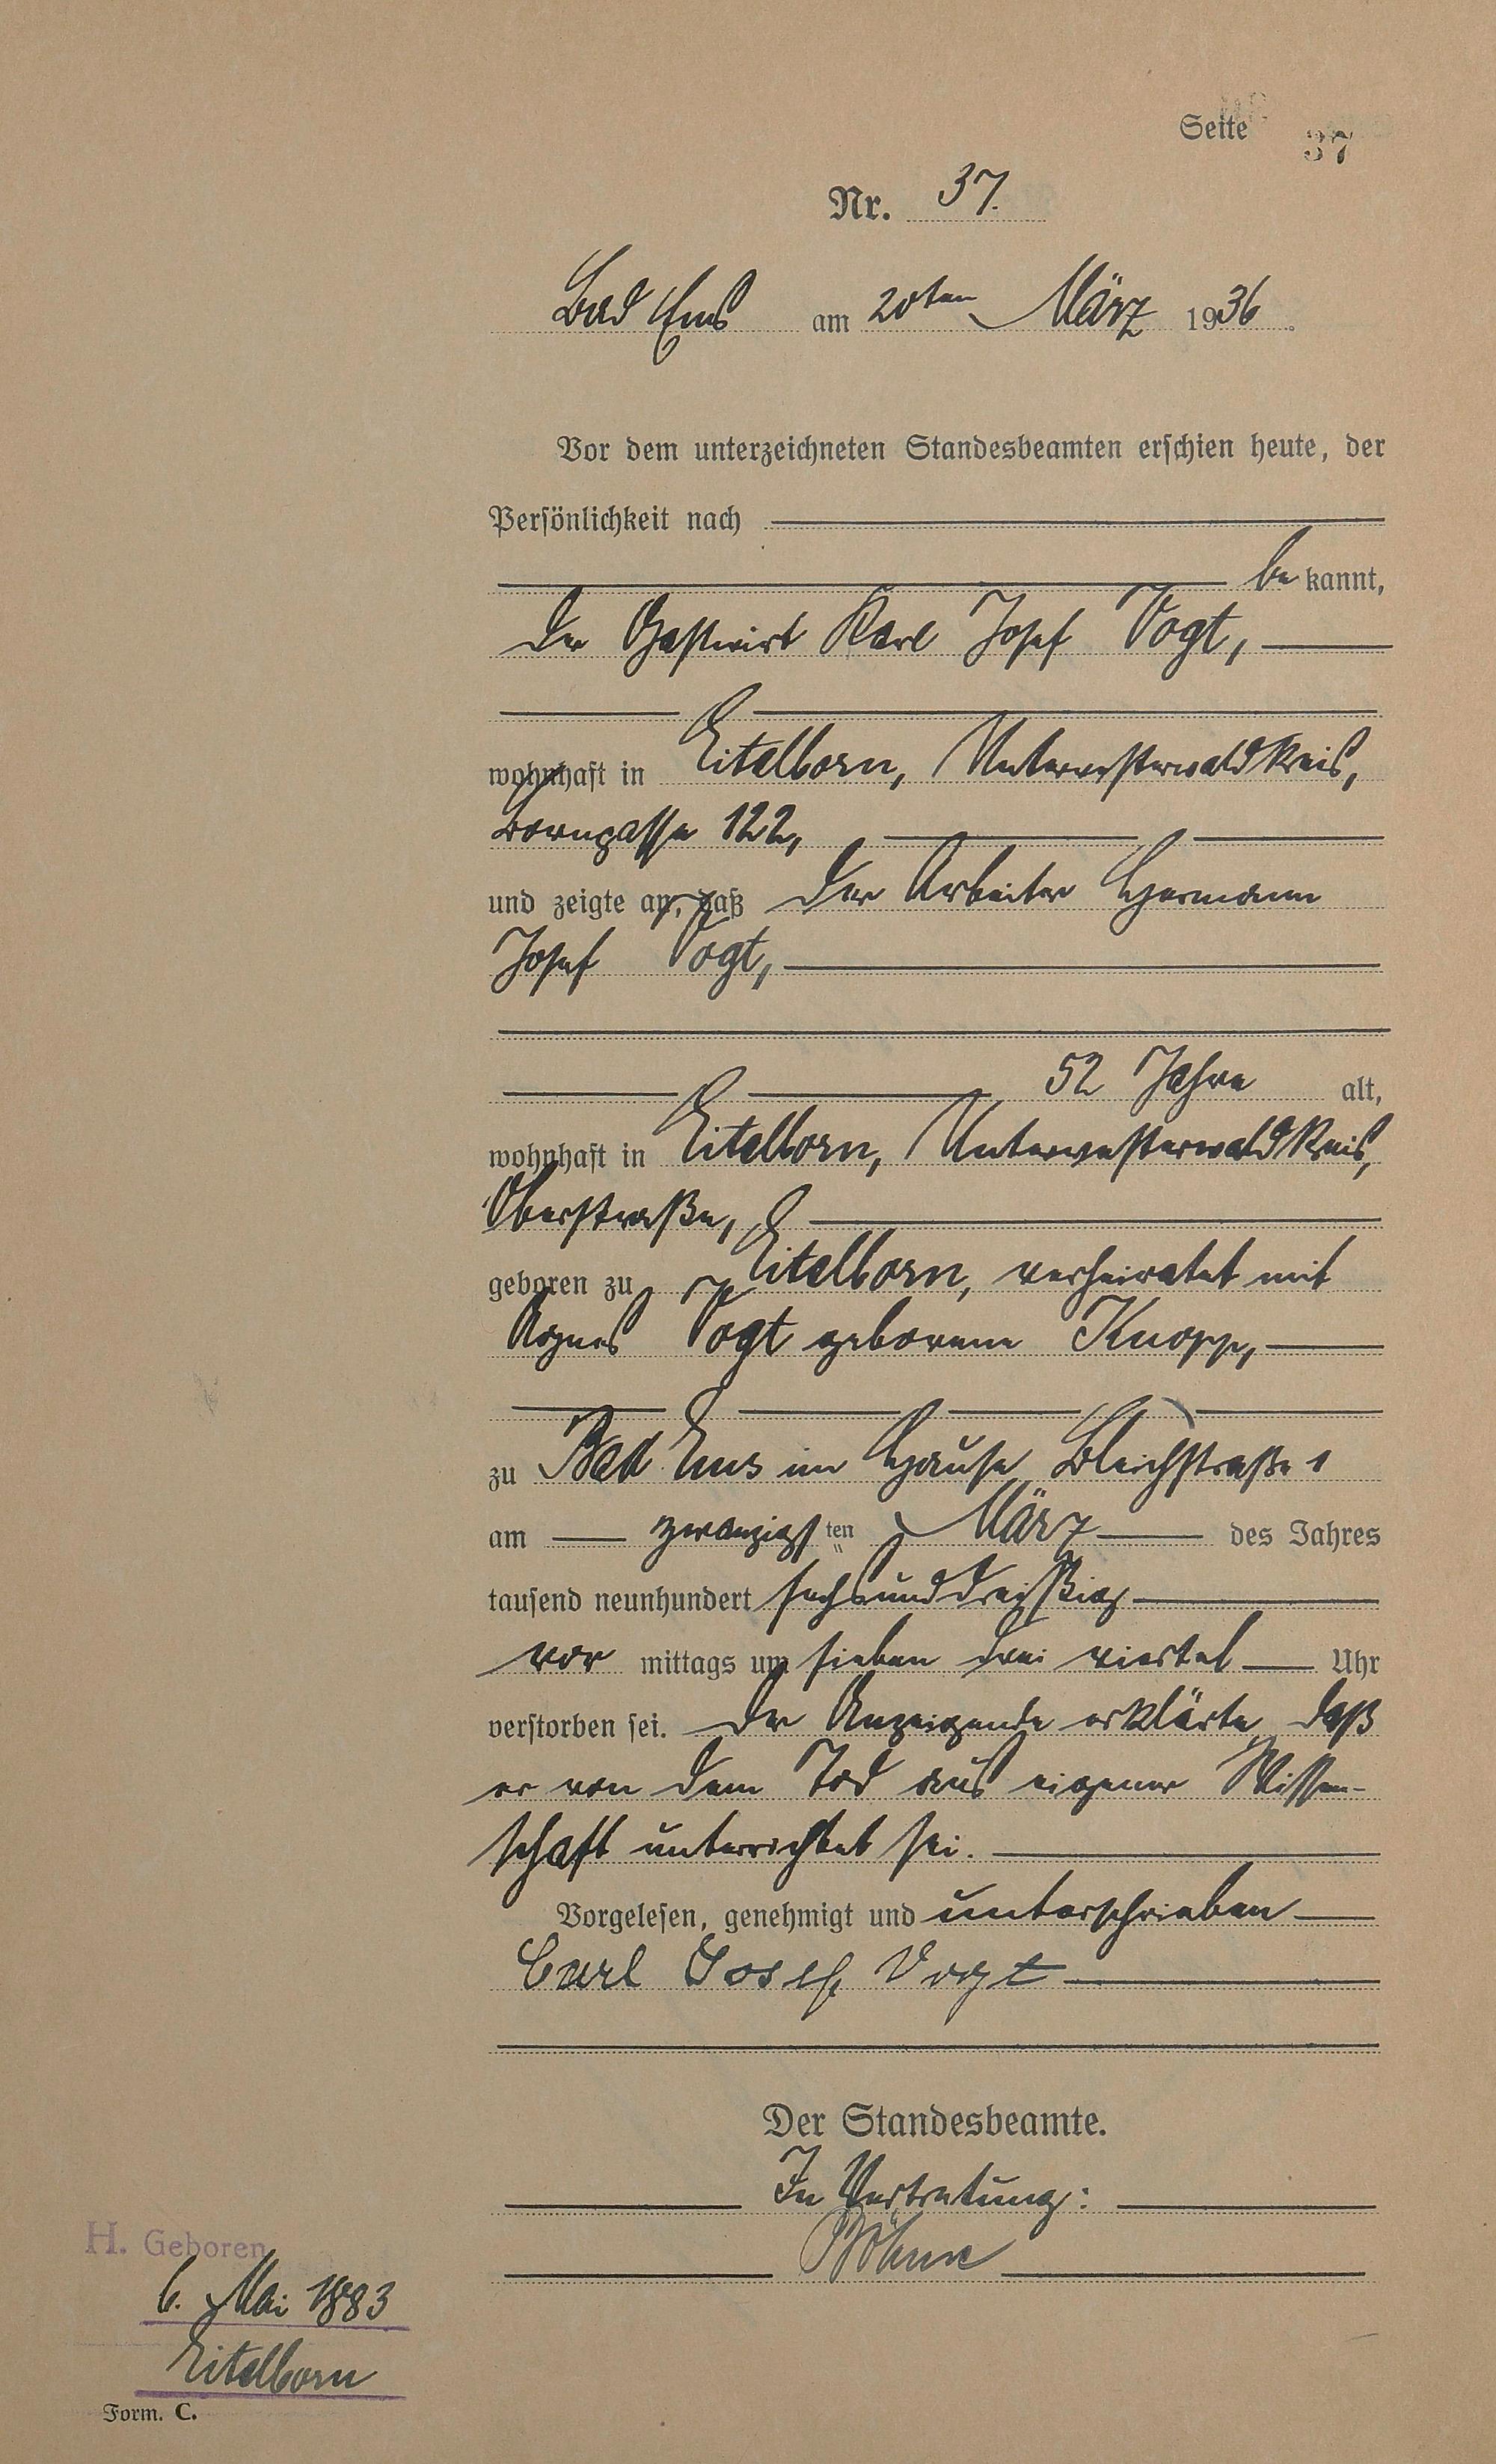 Seite 37
Nr. 37.
Bad Ems am 20ten März 1936.
Vor dem unterzeichneten Standesbeamten erschien heute, der
Persönlichkeit nach
be kannt,
der Gastwirt Karl Josef Vogt,
wohnhaft in Eitelborn, Unterwesterwaldkreis,
Borngasse 122,
und zeigte an, daß der Arbeiter Hermann
Josef Vogt,
52 Jahre alt,
wohnhaft in Eitelborn, Unterwesterwaldkreis,
Oberstraße,
geboren zu Eitelborn, verheiratet mit
Agnes Vogt geborene Knopp,
zu Bad Ems im Hause Bleichstraße 1
am zwanzigsten März des Jahres
tausend neunhundert sechsunddreißig
vor mittags um sieben drei viertel Uhr
verstorben sei. Der Anzeigende erklärte, daß
er von dem Tod aus eigener Wissen-
schaft unterrichtet sei.
Vorgelesen, genehmigt und unterschrieben
Carl Josef Vogt
Der Standesbeamte.
In Vertretung:
Böhme
H. Geboren
6. Mai 1883
Eitelborn
Form. C.